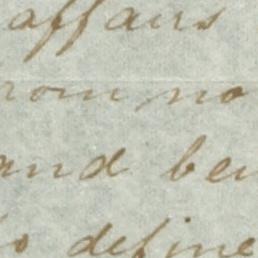 affairs
rom no
and bei
to define